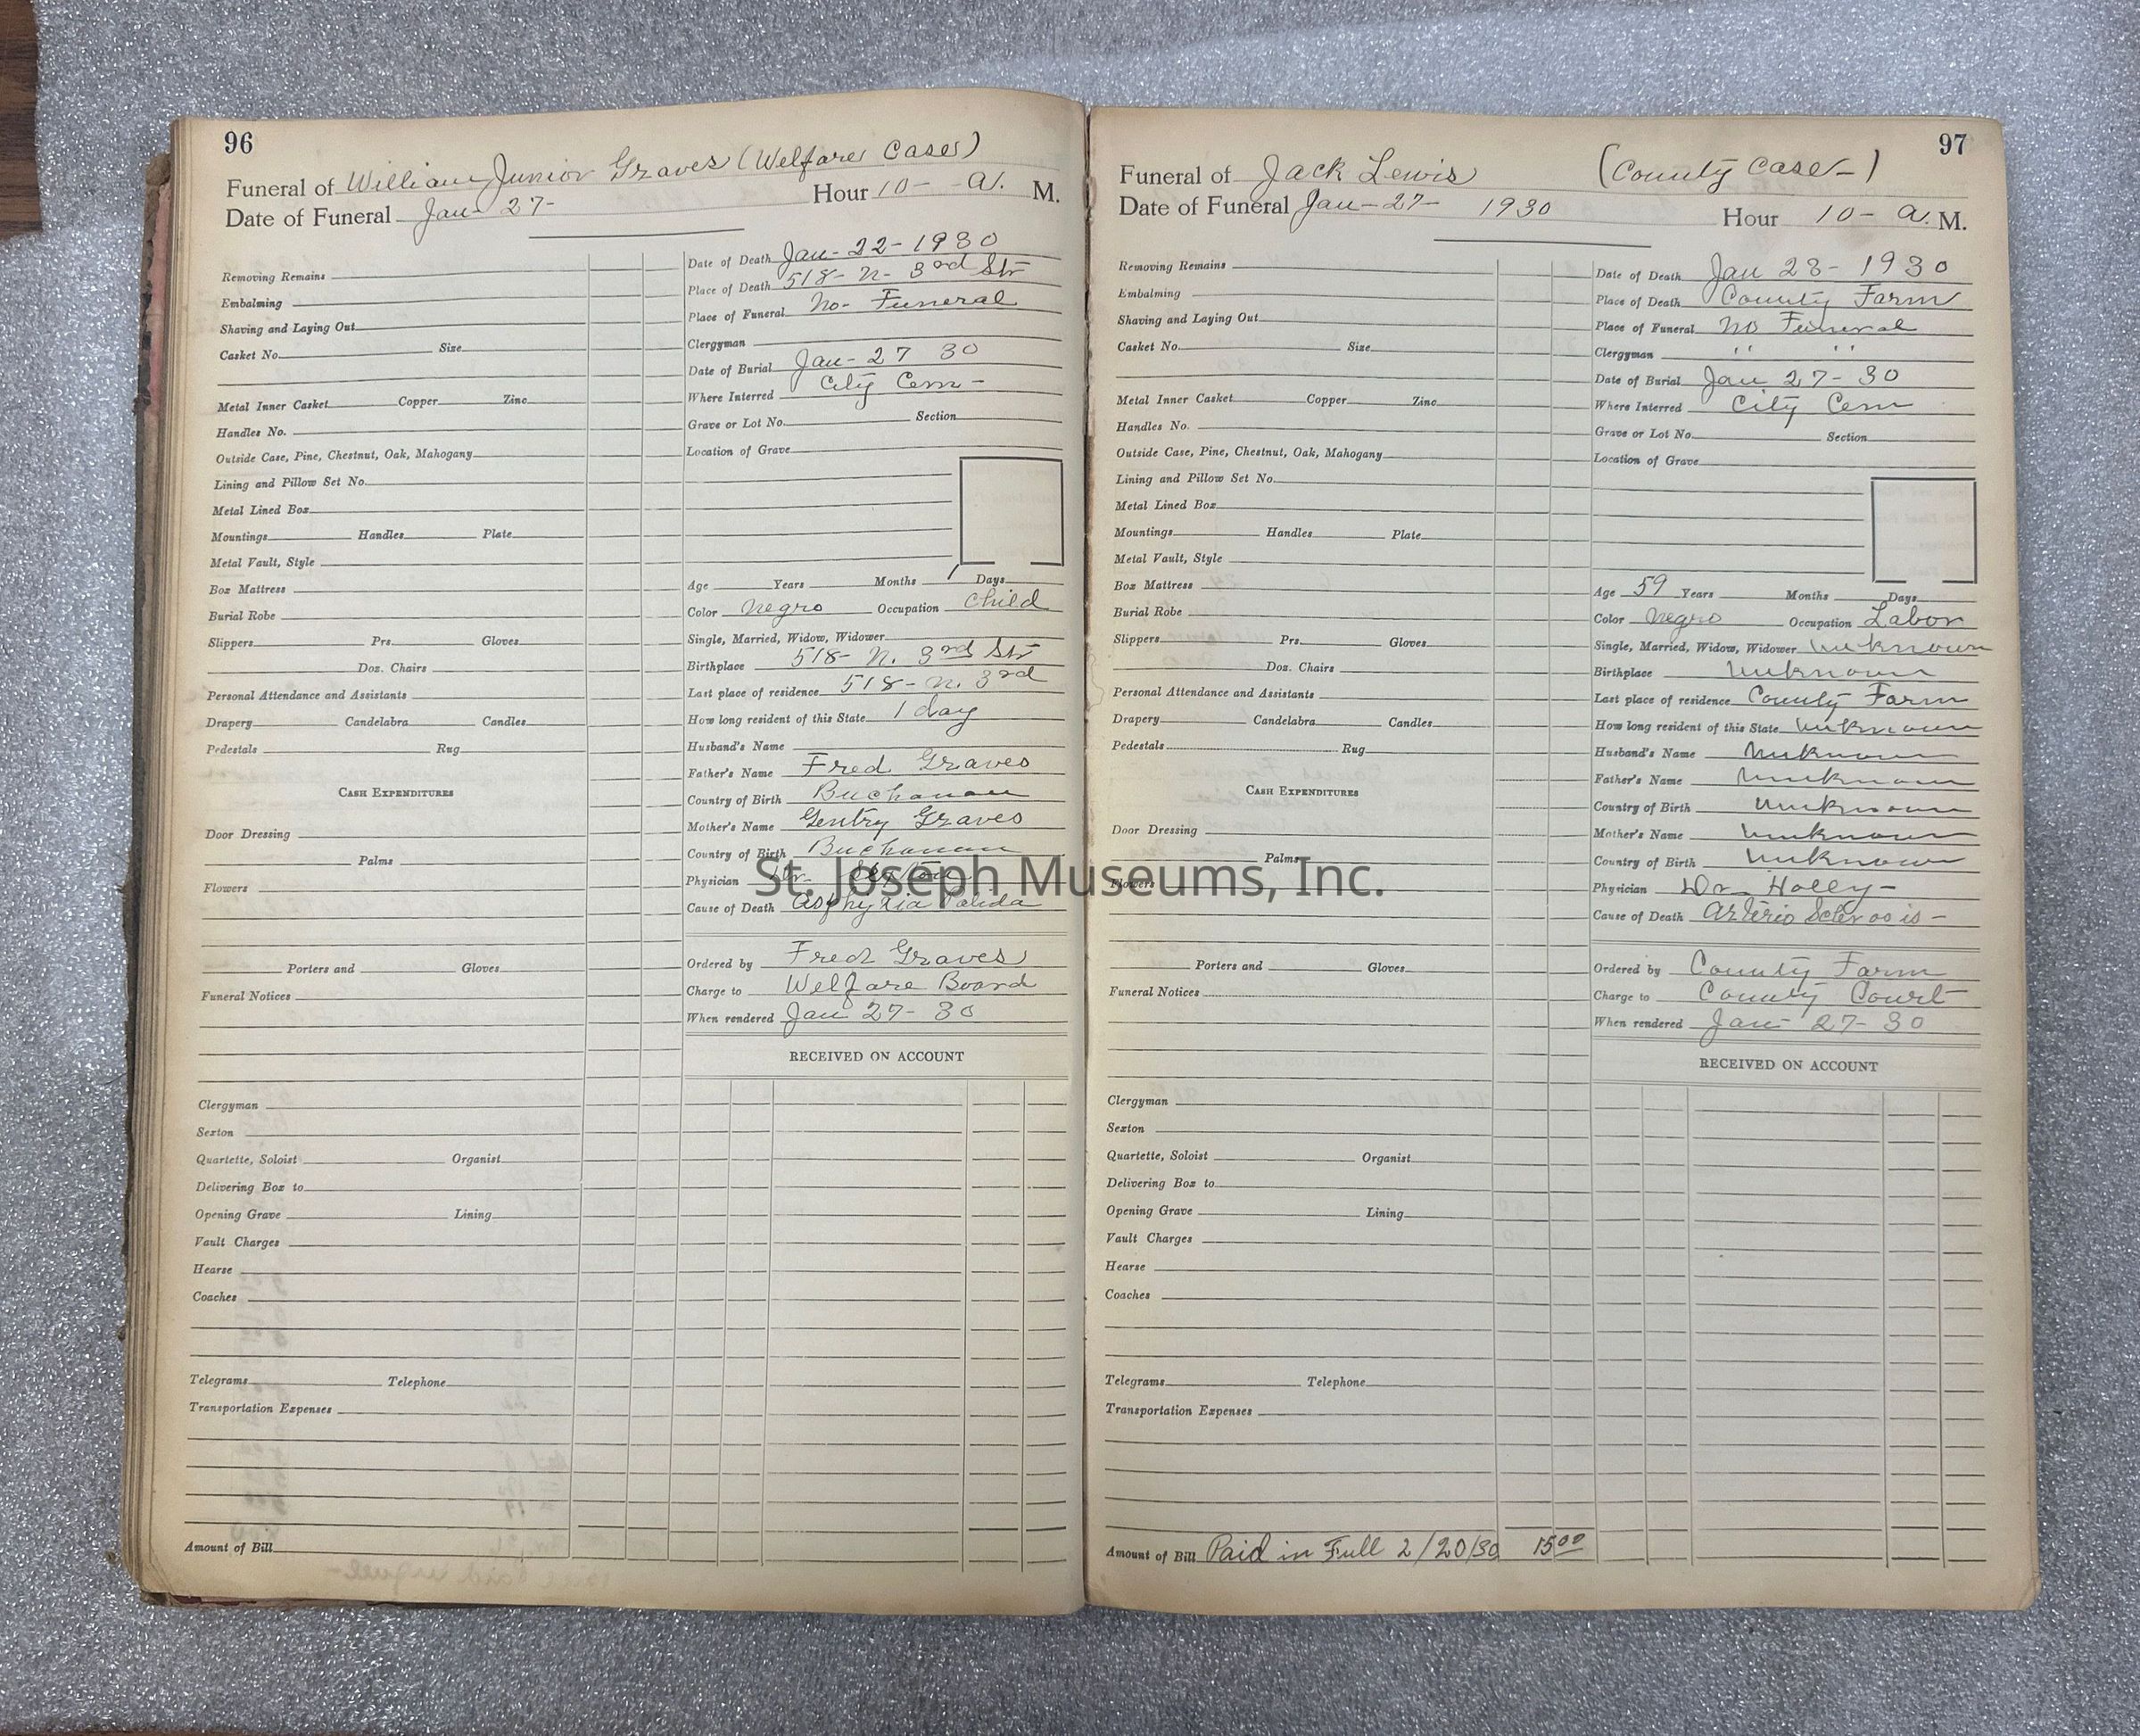 96
Funeral of William Junior Graves (Welfare Case)
Date of Funeral Jan- 27- Hour 10- A. M.
Removing Remains
Embalming
Shaving and Laying Out
Casket No. Size
Metal Inner Casket Copper Zinc
Handles No.
Outside Case, Pine, Chestnut, Oak, Mahogany
Lining and Pillow Set No.
Metal Lined Box
Mountings Handles Plate
Metal Vault, Style
Box Mattress
Burial Robe
Slippers Prs. Gloves
Doz. Chairs
Personal Attendance and Assistants
Drapery Candelabra Candles
Pedestals Rug
CASH EXPENDITURES
Door Dressing
Palms
Flowers
Porters and Gloves
Funeral Notices
Clergyman
Sexton
Quartette, Soloist Organist
Delivering Box to
Opening Grave Lining
Vault Charges
Hearse
Coaches
Telegrams Telephone
Transportation Expenses
Amount of Bill
Date of Death Jan- 22- 1930
Place of Death 518- N- 3rd Str
Place of Funeral No- Funeral
Clergyman
Date of Burial Jan- 27 30
Where Interred City Cem-
Grave or Lot No. Section
Location of Grave
Age Years Months 1 Days
Color Negro Occupation Child
Single, Married, Widow, Widower
Birthplace 518- N. 3rd Str
Last place of residence 518- N. 3rd
How long resident of this State 1 day
Husband's Name
Father's Name Fred Graves
Country of Birth Buchanan
Mother's Name Gentry Graves
Country of Birth Buchanan
Physician Dr-
Cause of Death Asphyxia Palida
Ordered by Fred Graves
Charge to Welfare Board
When rendered Jan 27- 30
RECEIVED ON ACCOUNT
97
Funeral of Jack Lewis (County Case-)
Date of Funeral Jan- 27- 1930 Hour 10- A. M.
Removing Remains
Embalming
Shaving and Laying Out
Casket No. Size
Metal Inner Casket Copper Zinc
Handles No.
Outside Case, Pine, Chestnut, Oak, Mahogany
Lining and Pillow Set No.
Metal Lined Box
Mountings Handles Plate
Metal Vault, Style
Box Mattress
Burial Robe
Slippers Prs. Gloves
Doz. Chairs
Personal Attendance and Assistants
Drapery Candelabra Candles
Pedestals Rug
CASH EXPENDITURES
Door Dressing
Palms
Flowers
Porters and Gloves
Funeral Notices
Clergyman
Sexton
Quartette, Soloist Organist
Delivering Box to
Opening Grave Lining
Vault Charges
Hearse
Coaches
Telegrams Telephone
Transportation Expenses
Amount of Bill Paid in Full 2/20/30 15 00
Date of Death Jan 23- 1930
Place of Death County Farm
Place of Funeral No Funeral
Clergyman " "
Date of Burial Jan 27- 30
Where Interred City Cem
Grave or Lot No. Section
Location of Grave
Age 59 Years Months Days
Color Negro Occupation Labor
Single, Married, Widow, Widower Unknown
Birthplace Unknown
Last place of residence County Farm
How long resident of this State Unknown
Husband's Name Unknown
Father's Name Unknown
Country of Birth Unknown
Mother's Name Unknown
Country of Birth Unknown
Physician Dr- Holly-
Cause of Death Arterio Sclerosis-
Ordered by County Farm
Charge to County Court
When rendered Jan- 27- 30
RECEIVED ON ACCOUNT
St. Joseph Museums, Inc.